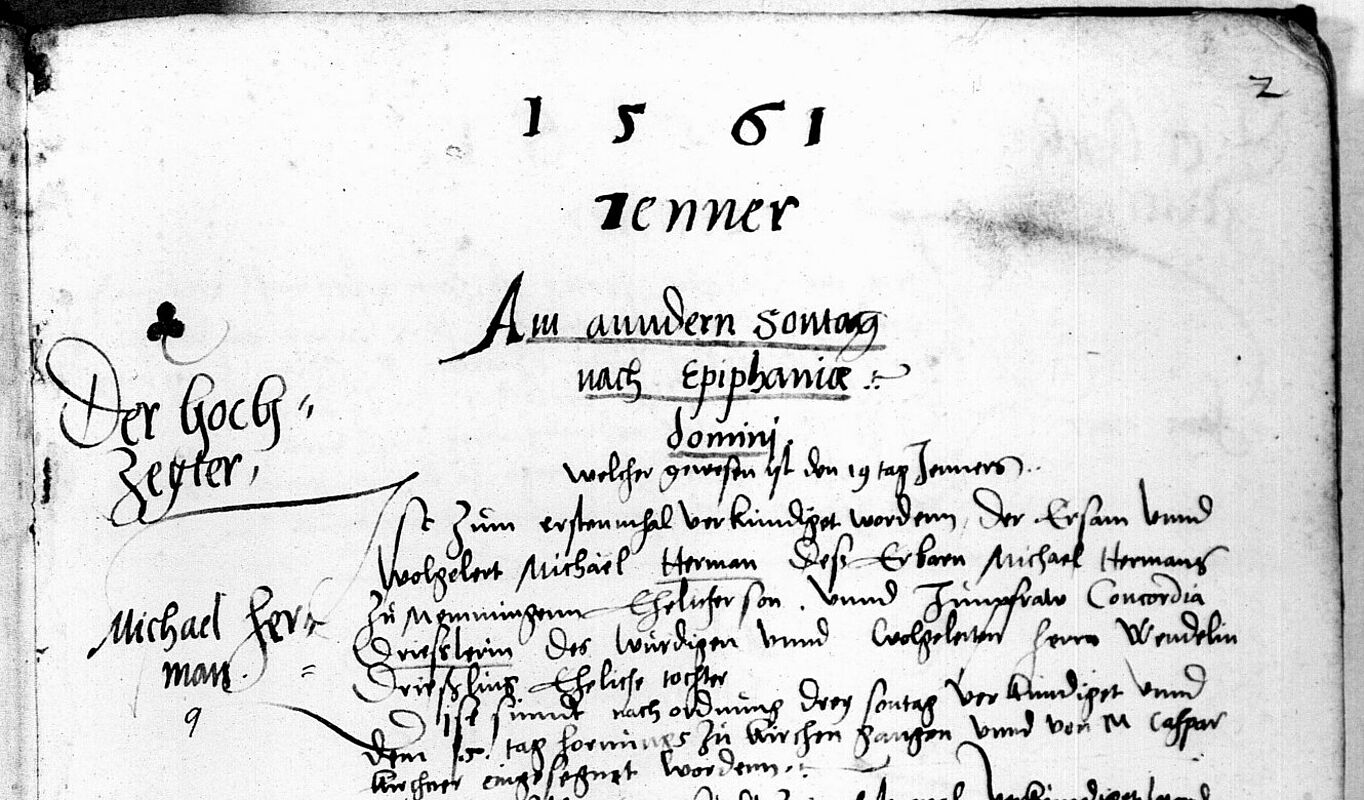 2
1 5 6 1
Jenner
Am anndern Sontag
nach Epiphaniæ
domini.
welcher gewesen ist den 19 tag Jenners
Der Hoch„
Zeyter,
Ist zum erstenmhal verkundiget wordenn, Der Ersam vnnd
Wolgelert Michael Herman Deß Erbarn Michael Hermans
Zu Memmingenn Ehelicher son, vnnd Junpfraw Concordia
Michael Her„
man.
9
Drießlerin des wurdigen vnnd Wolgelerten herrn Wendelin
Drießlins Eheliche tochter
Ist sunndt nach ordnung drey sontag verkundiget vnnd
dem tag hornungs zu Kirchen gangen vnnd von M Caspar
Kirchner eingesegnet wordenn.